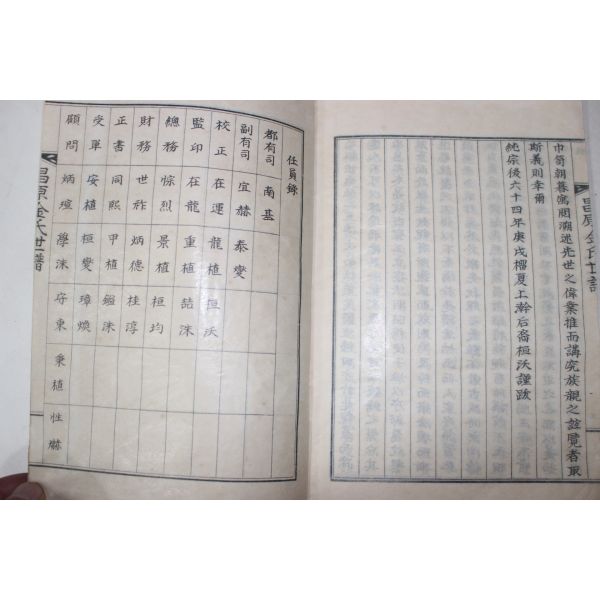 巾笥朝暮寓閱溯述先世之偉業推而講究族親之誼覽者取
斯義則幸爾
純宗後六十四年庚戌榴夏上澣后裔桓沃謹跋
昌原金氏世譜
任員錄
都有司 南基
副有司 宜赫 泰燮
校正 在運 龍植 桓沃
監印 在龍 重植 喆洙
總務 悰烈 景植 桓均
財務 世祚 炳德 桂淳
正書 同熙 甲植 洙
受單 安植 桓燮 璋煥
顧問 炳瑄 學洙 存東 秉植 性赫
昌原金氏世譜